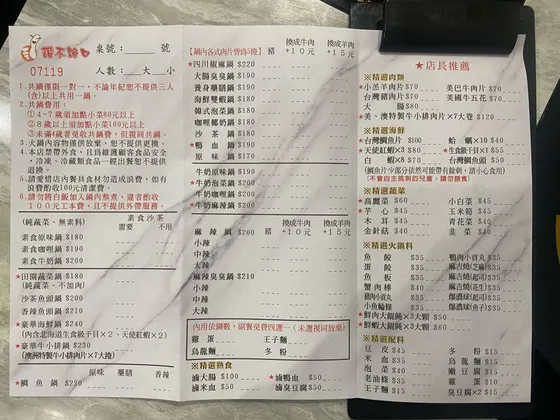 桌號：______ 號
07119
人數：___大___小
1.共鍋僅限一對一，不論年紀恕不提供三人(含)以上共用一鍋。
2.共鍋費用：
①4-7歲須加點小菜80元以上
②8歲以上須加點小菜100元以上
③未滿4歲者免收共鍋費，但視同共鍋。
3.火鍋內容物僅供飲宴，恕不提供更換。
4.本店禁帶外食，且為維護顧客食品安全，冷凍、冷藏類食品一經出餐恕不提供退換。
5.請愛惜店內餐具食材勿造成浪費，如有浪費酌收100元清潔費。
6.請勿將白飯加入鍋內熬煮，違者酌收100元工本費，且不提供外帶服務。
(純蔬菜、無素料)
素食沙茶
需要 不用
素食原味鍋 $180
素食咖哩鍋 $190
素食牛奶鍋 $200
★田園蔬菜鍋 $180
(純蔬菜、不加肉)
沙茶魚頭鍋 $200
香辣魚頭鍋 $210
★豪華海鮮鍋 $240
(內含北海道生食級干貝×2、天使紅蝦×2)
★豪華牛小排鍋 $230
(澳洲特製牛小排肉片×7大捲)
原味 藥膳 香辣
★鯛魚鍋 $220
【鍋內各式肉片皆為5捲】
豬
換成牛肉
+10元
換成羊肉
+15元
★四川椒麻鍋 $220
大腸臭臭鍋 $190
養身藥膳鍋 $190
海鮮雙蝦鍋 $180
韓式泡菜鍋 $180
咖哩椰奶鍋 $180
沙茶鍋 $180
★鴨血鍋 $190
原味鍋 $170
牛奶原味鍋 $190
★牛奶泡菜鍋 $200
★牛奶咖哩鍋 $200
★牛奶麻辣鍋 $200
豬
換成牛肉
+10元
換成羊肉
+15元
麻辣鍋 $200
小辣
中辣
大辣
麻辣臭臭鍋 $210
小辣
中辣
大辣
內用依鍋數，副餐免費四選一（未選視同放棄）
雞蛋 王子麵
烏龍麵 冬粉
※精選熟食
滷大腸 $100
★滷鴨血 $50
滷米血 $50
滷臭豆腐 $50
★店長推薦
※精選肉類
★小羔羊肉片 $70
美巴牛肉片 $70
台灣豬肉片 $70
美國牛五花 $70
大腸 $80
★美、澳特製牛小排肉片×7大卷 $120
※精選海鮮
★台灣鯛魚片 $100
蛤蠣×10 $40
★天使紅蝦×3 $80
★生食級干貝×1 $55
白蝦×8 $70
台灣鯛魚頭 $50
(鯛魚片少部分依然可能帶有餘刺，請小心食用)
(不會自主挑刺的兒童，請勿餵食)
※精選蔬菜
★高麗菜 $60
小白菜 $45
★芋心 $45
玉米筍 $45
木耳 $45
青花菜 $45
金針菇 $40
韭菜 $40
※精選火鍋料
魚餃 $35
鴨肉小貢丸 $35
蛋餃 $35
麻吉燒(芝麻) $35
魚板 $35
麻吉燒(花生) $35
蟹肉棒 $40
麻吉燒(起司) $35
豬肉小貢丸 $35
爆漿球(起司) $35
小魚輪條 $35
爆漿球(魚子) $35
★鮮肉大餛飩×3大顆 $50
★鮮蝦大餛飩×3大顆 $60
※精選配料
豆皮 $45
冬粉 $15
米血 $35
烏龍麵 $15
泡菜 $40
嫩豆腐 $15
老油條 $35
雞蛋 $15
王子麵 $15
臭豆腐×2 $40